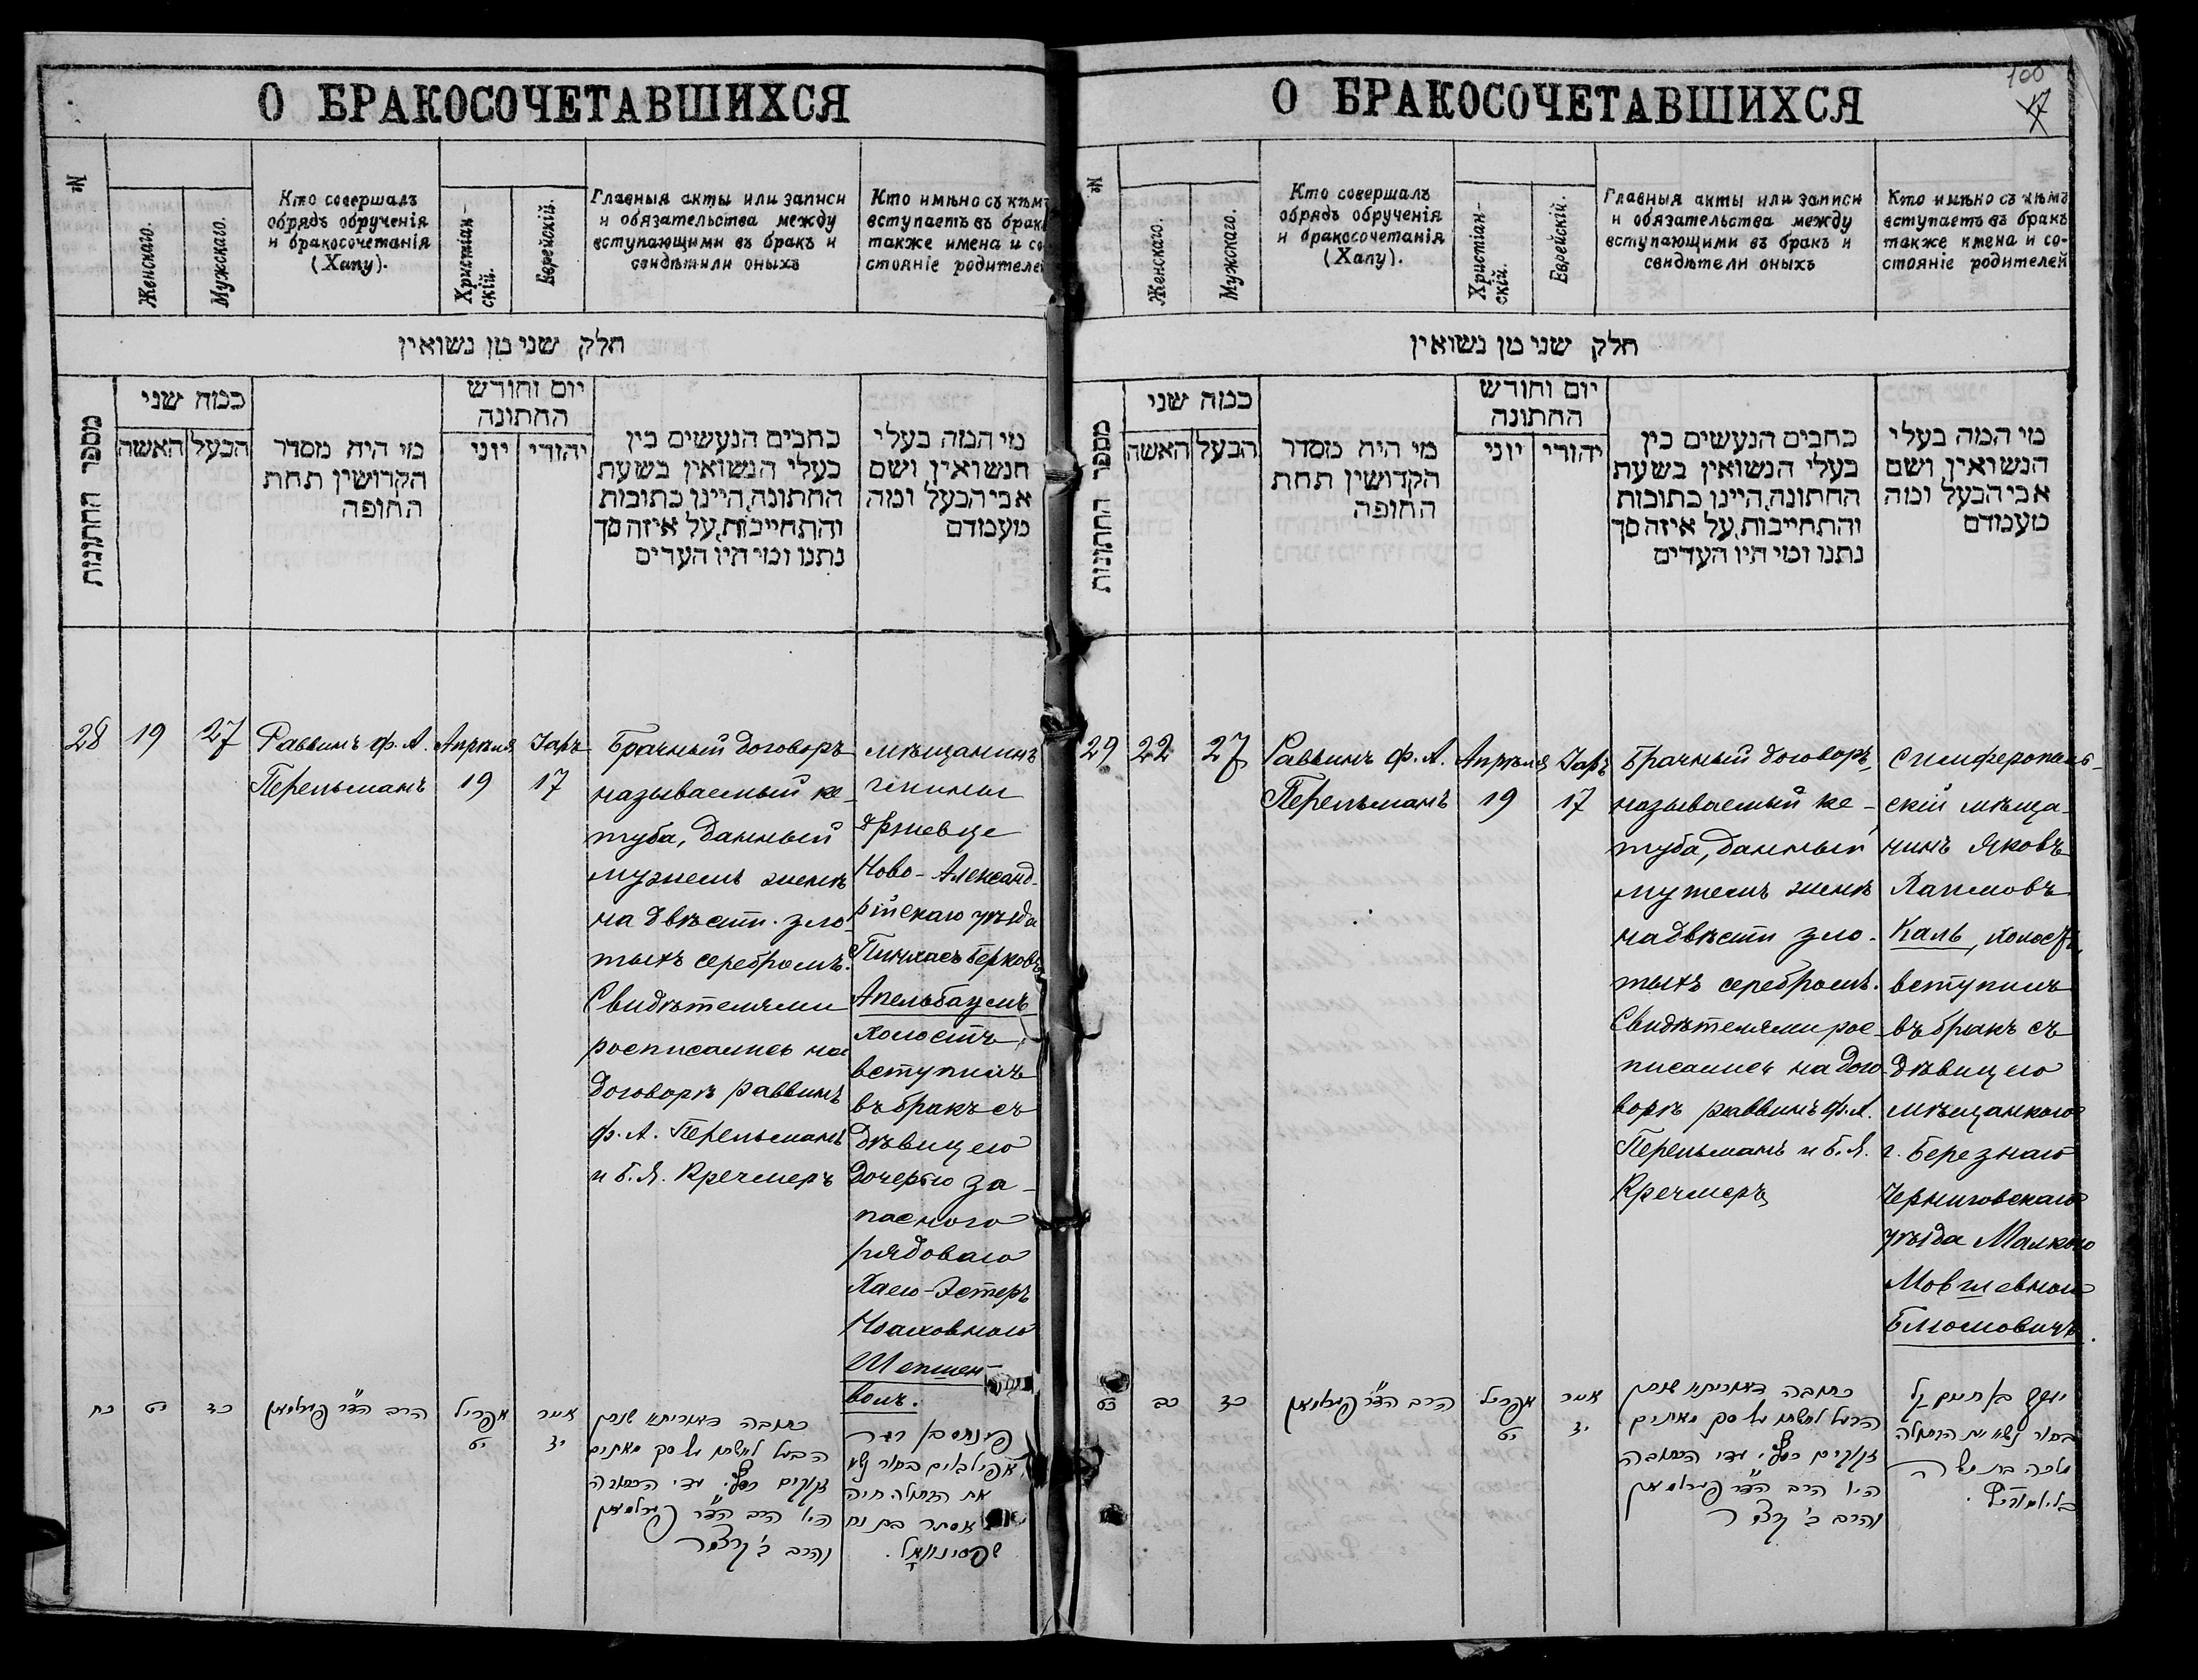 О БРАКОСОЧЕТАВШИХСЯ
№
Женскаго.
Мужскаго.
Кто совершалъ
обрядъ обрученія
и бракосочетанія
(Хапу).
Христіан-
скій.
Еврейскій.
Главныя акты или записи
и обязательства между
вступающими въ бракъ и
свидѣтили оныхъ
Кто имѣно съ кѣмъ
вступаетъ въ бракъ
также имена и со-
стояніе родителей
חלק שני מן נשואין
מספר החתונות
כמה שני
האשה
הבעל
מי היה מסדר
הקדושין תחת
החופה
יום וחודש
החתונה
יוני
יהודי
כתבים הנעשים בין
בעלי הנשואין בשעת
החתונה, היינו כתובות
והתחייבות, על איזה סך
נתנו ומי היו העדים
מי המה בעלי
הנשואין ושם
אבי הבעל ומה
מעמדם
28
19
27
Раввинъ Ф. А.
Перельманъ
Апрѣля
19
Іаръ
17
Брачный договоръ
называемый ке-
туба, данный
мужемъ женѣ
на двѣсти зло-
тыхъ серебромъ.
Свидѣтелями
росписались на
договорѣ раввинъ
Ф. А. Перельманъ
и Б. Я. Кречмеръ
мѣщанинъ
гмины
Ржевце
Ново-Александ-
рійскаго уѣзда
Пинхасъ Берковъ
Апельбаумъ
холостъ,
вступилъ
въ бракъ съ
дѣвицею
дочерью за-
паснаго
рядоваго
Хаею-Эстеръ
Ноаховною
Шепшен-
волъ.
כח
יט
כז
הרב הד״ר פערלמאן
אפריל
יט
אייר
יז
כתובה דאוריתא שנתן
הבעל לאשתו על סך מאתים
זקוקים כסף. עדי הכתובה
היו הרב הד״ר פערלמאן
והרב ב׳ קרצמר
פינחס בן בער
אפילבוים בחור נשא
את הבתולה חיה
אסתר בת נח
О БРАКОСОЧЕТАВШИХСЯ
100
№
Женскаго.
Мужскаго.
Кто совершалъ
обрядъ обрученія
и бракосочетанія
(Хапу).
Христіан-
скій.
Еврейскій.
Главныя акты или записи
и обязательства между
вступающими въ бракъ и
свидѣтели оныхъ
Кто имѣно съ кѣмъ
вступаетъ въ бракъ
также имена и со-
стояніе родителей
חלק שני מן נשואין
מספר החתונות
כמה שני
האשה
הבעל
מי היה מסדר
הקדושין תחת
החופה
יום וחודש
החתונה
יוני
יהודי
כתבים הנעשים בין
בעלי הנשואין בשעת
החתונה, היינו כתובות
והתחייבות, על איזה סך
נתנו ומי היו העדים
מי המה בעלי
הנשואין ושם
אבי הבעל ומה
מעמדם
29
22
27
Раввинъ Ф. А.
Перельманъ
Апрѣля
19
Іаръ
17
Брачный договоръ,
называемый ке-
туба, данный
мужемъ женѣ
на двѣсти зло-
тыхъ серебромъ.
Свидѣтелями рос-
писались на дого-
ворѣ раввинъ Ф. А.
Перельманъ и Б. Я.
Кречмеръ
Симферополь-
скій мѣща-
нинъ Яковъ
Хаимовъ
Каль, холостъ,
вступилъ
въ бракъ съ
дѣвицею
мѣщанкою
г. Березнаго
Черниговскаго
уѣзда Малкою
Мовшевною
Блюмовичъ.
כט
כב
כז
הרב הד״ר פערלמאן
אפריל
יט
אייר
יז
כתובה דאוריתא שנתן
הבעל לאשתו על סך מאתים
זקוקים כסף. עדי הכתובה
היו הרב הד״ר פערלמאן
והרב ב׳ קרצמר
יעקב בן חיים קל
בחור נשא את הבתולה
מלכה בת משה